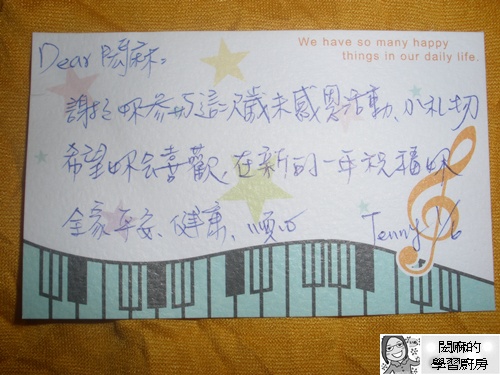 We have so many happy
things in our daily life.
Dear 閎麻：
謝謝妳參與這次歲末感恩活動、小礼物
希望妳會喜歡，在新的一年祝福妳
全家平安、健康、順心
Jenny 1/6
閎麻的
學習廚房